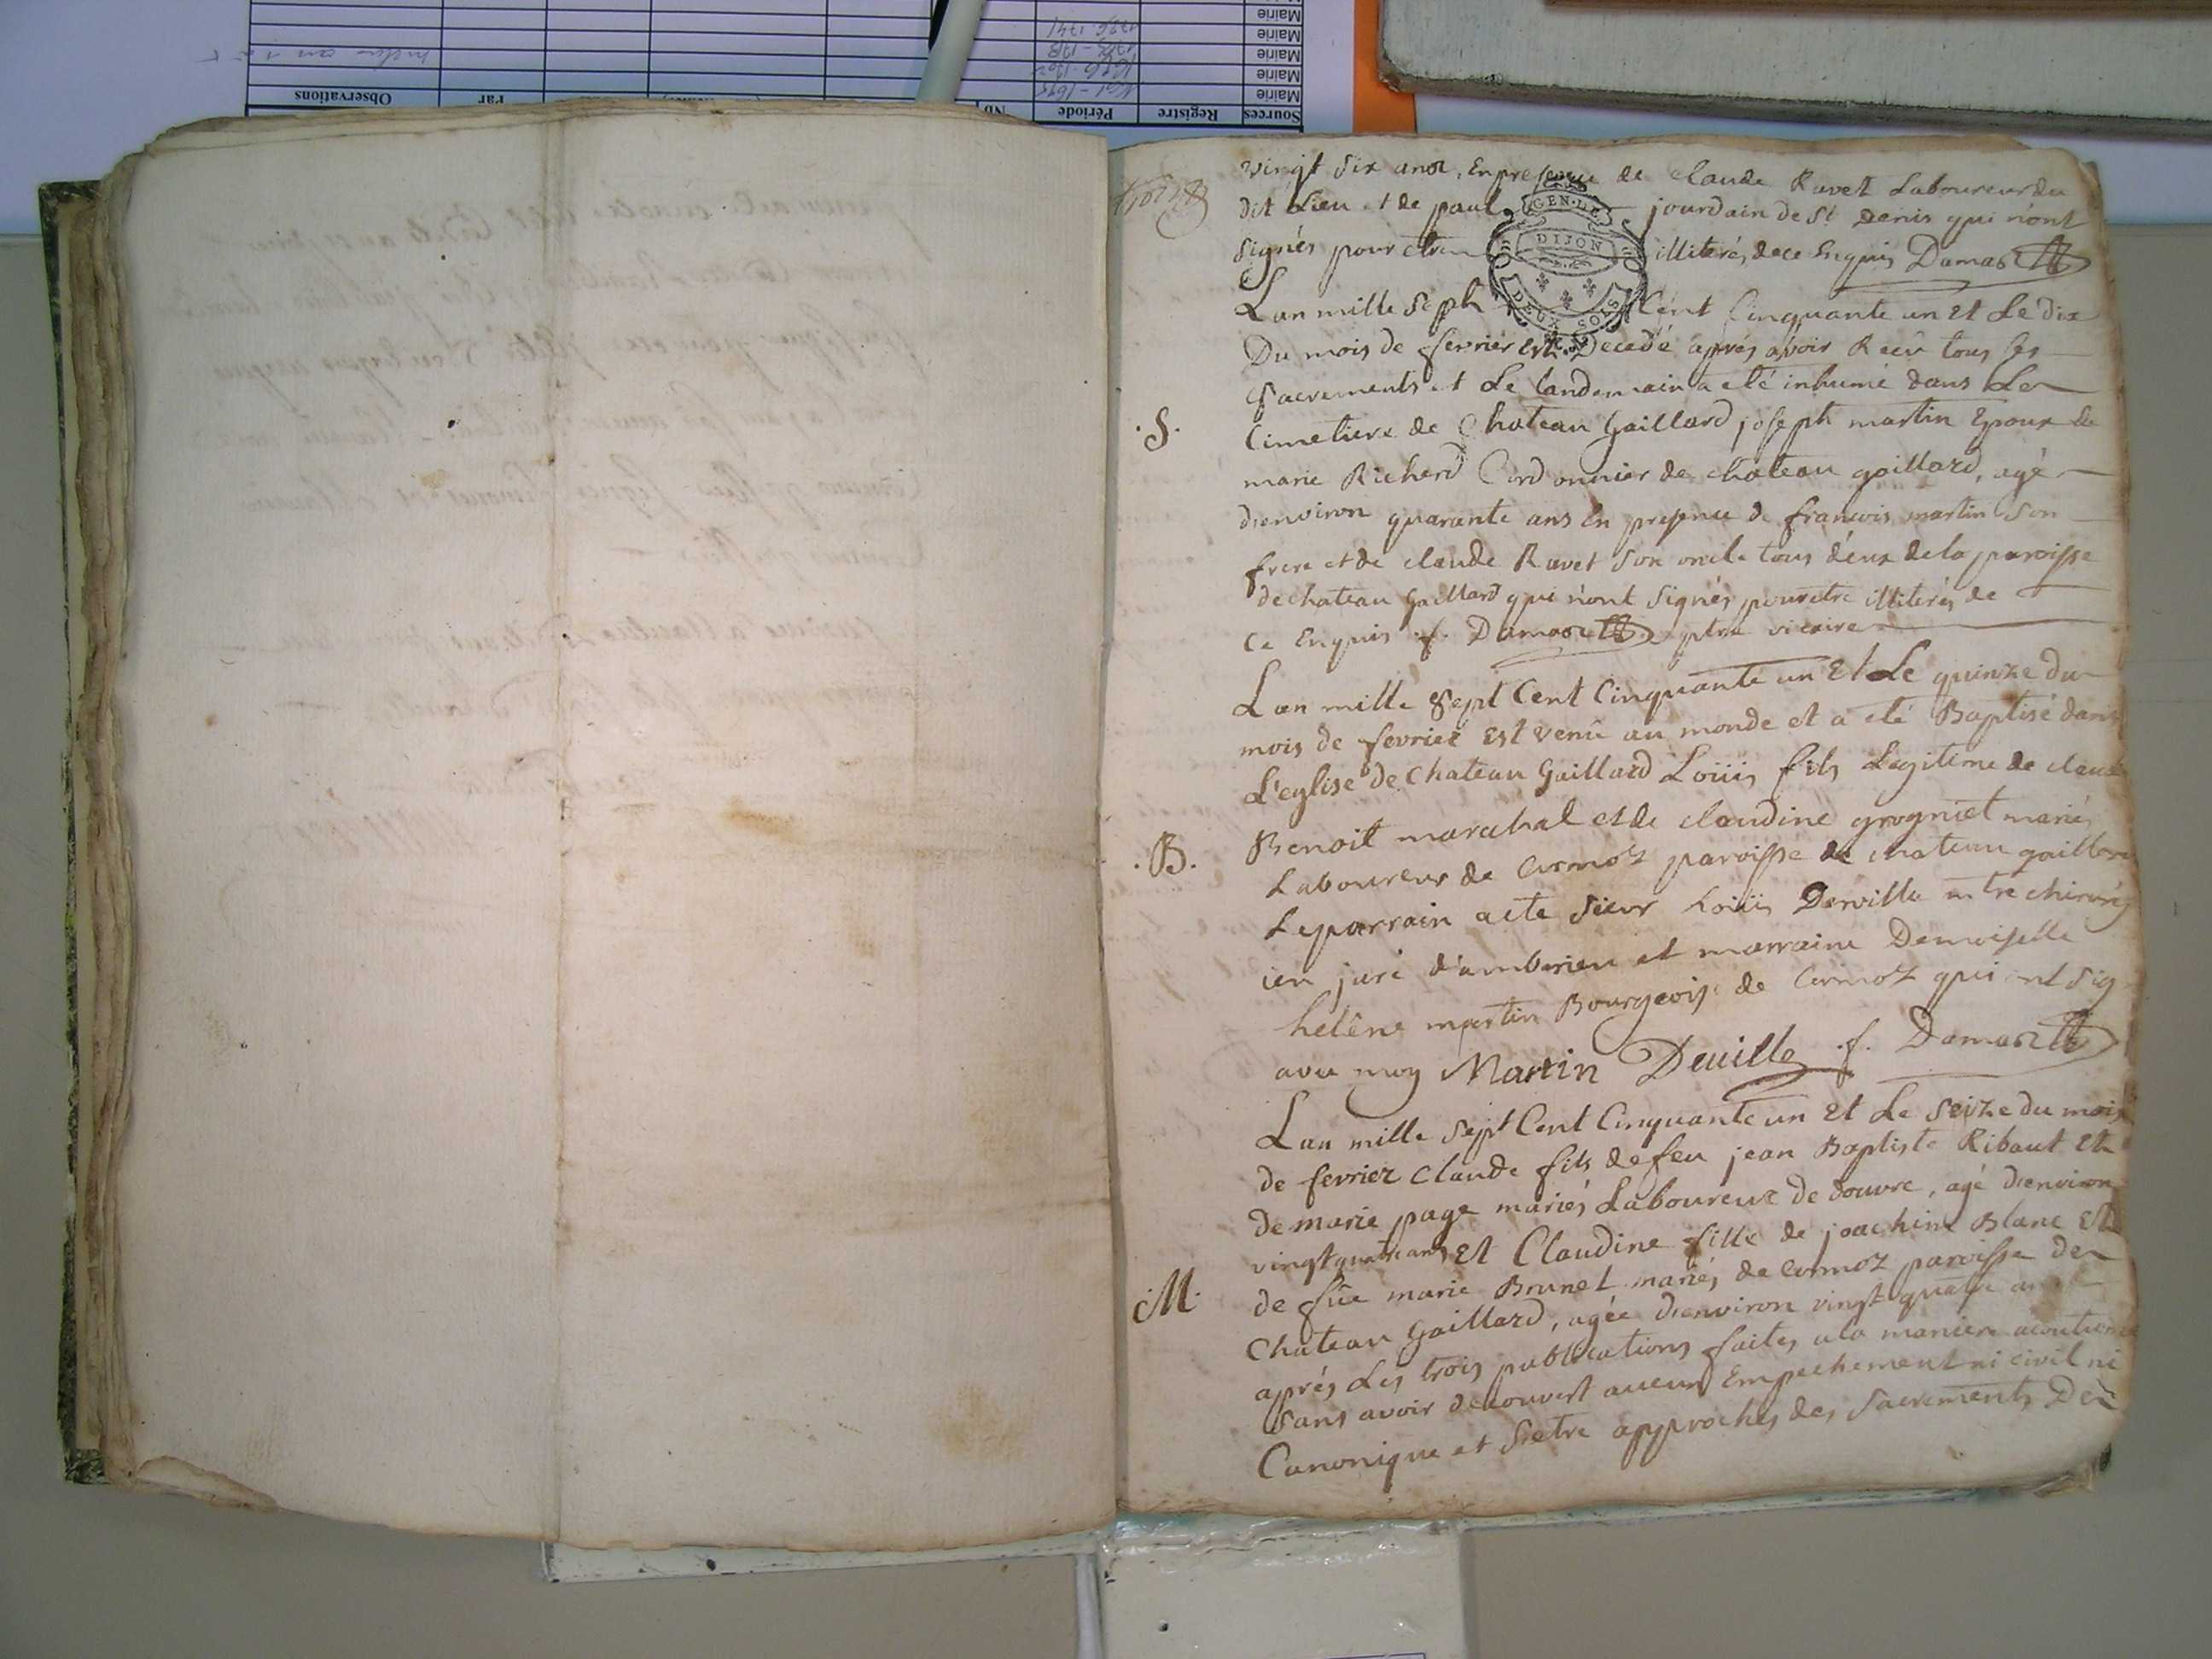 vingt six ans. En presence de claude Ravet Laboureur du
dit Lieu et de paul jourdain de St Denis qui n'ont
signés pour etre illiterés de ce Enquis Damas
GEN. DE
DIJON
DEUX SOLS
Lan mille Sept Cent Cinquante un Et Le dix
Du mois de fevrier Est Decedé aprés avoir Reçu tous ses
Sacrements et Le landemain a eté inhumé dans Le
.S.
Cimetiere de Chateau Gaillard joseph martin Epoux de
marie Richerd Cordonnier de chateau gaillard, agé
d'environ quarante ans En presence de francois martin Son
frere et de claude Ravet Son oncle tous deux de la paroisse
de chateau Gaillard qui n'ont Signés pour etre illiterés de
Ce Enquis f. Damas ptre vicaire
Lan mille Sept Cent Cinquante un Et Le quinze du
mois de fevrier Est venû au monde et a eté Baptisé dans
L'eglise de Chateau Gaillard Loüis fils Legitime de claude
.B.
Benoit marechal et de claudine grogniet mariés
Laboureur de Cormoz paroisse de chateau gaillard
Le parrain a ete Sieur Loüis Derville mtre chirurg
ien juré d'amberieu et marraine Demoiselle
helêne martin Bourgeoise de Cormoz qui ont Sig
avec moy Martin Deville f. Damas
Lan mille Sept Cent Cinquante un Et Le Seize du mois
de fevrier Claude fils de feu jean Baptiste Ribaut Et
De marie page mariés Laboureur de douvre, agé d'environ
vingt quatre ans Et Claudine fille de joachim Blanc Et
.M.
de füe marie Brunet mariés de Cormoz paroisse de
Chateau Gaillard, agée d'environ vingt quatre ans
aprés Les trois publications faites a la maniere acoutumée
Sans avoir decouvert aucun Empechement ni civil ni
Canonique et S'etre approchés des Sacrements De
Sources Registre Période Nb Par Observations
Mairie
Mairie
Mairie
Mairie
Mairie